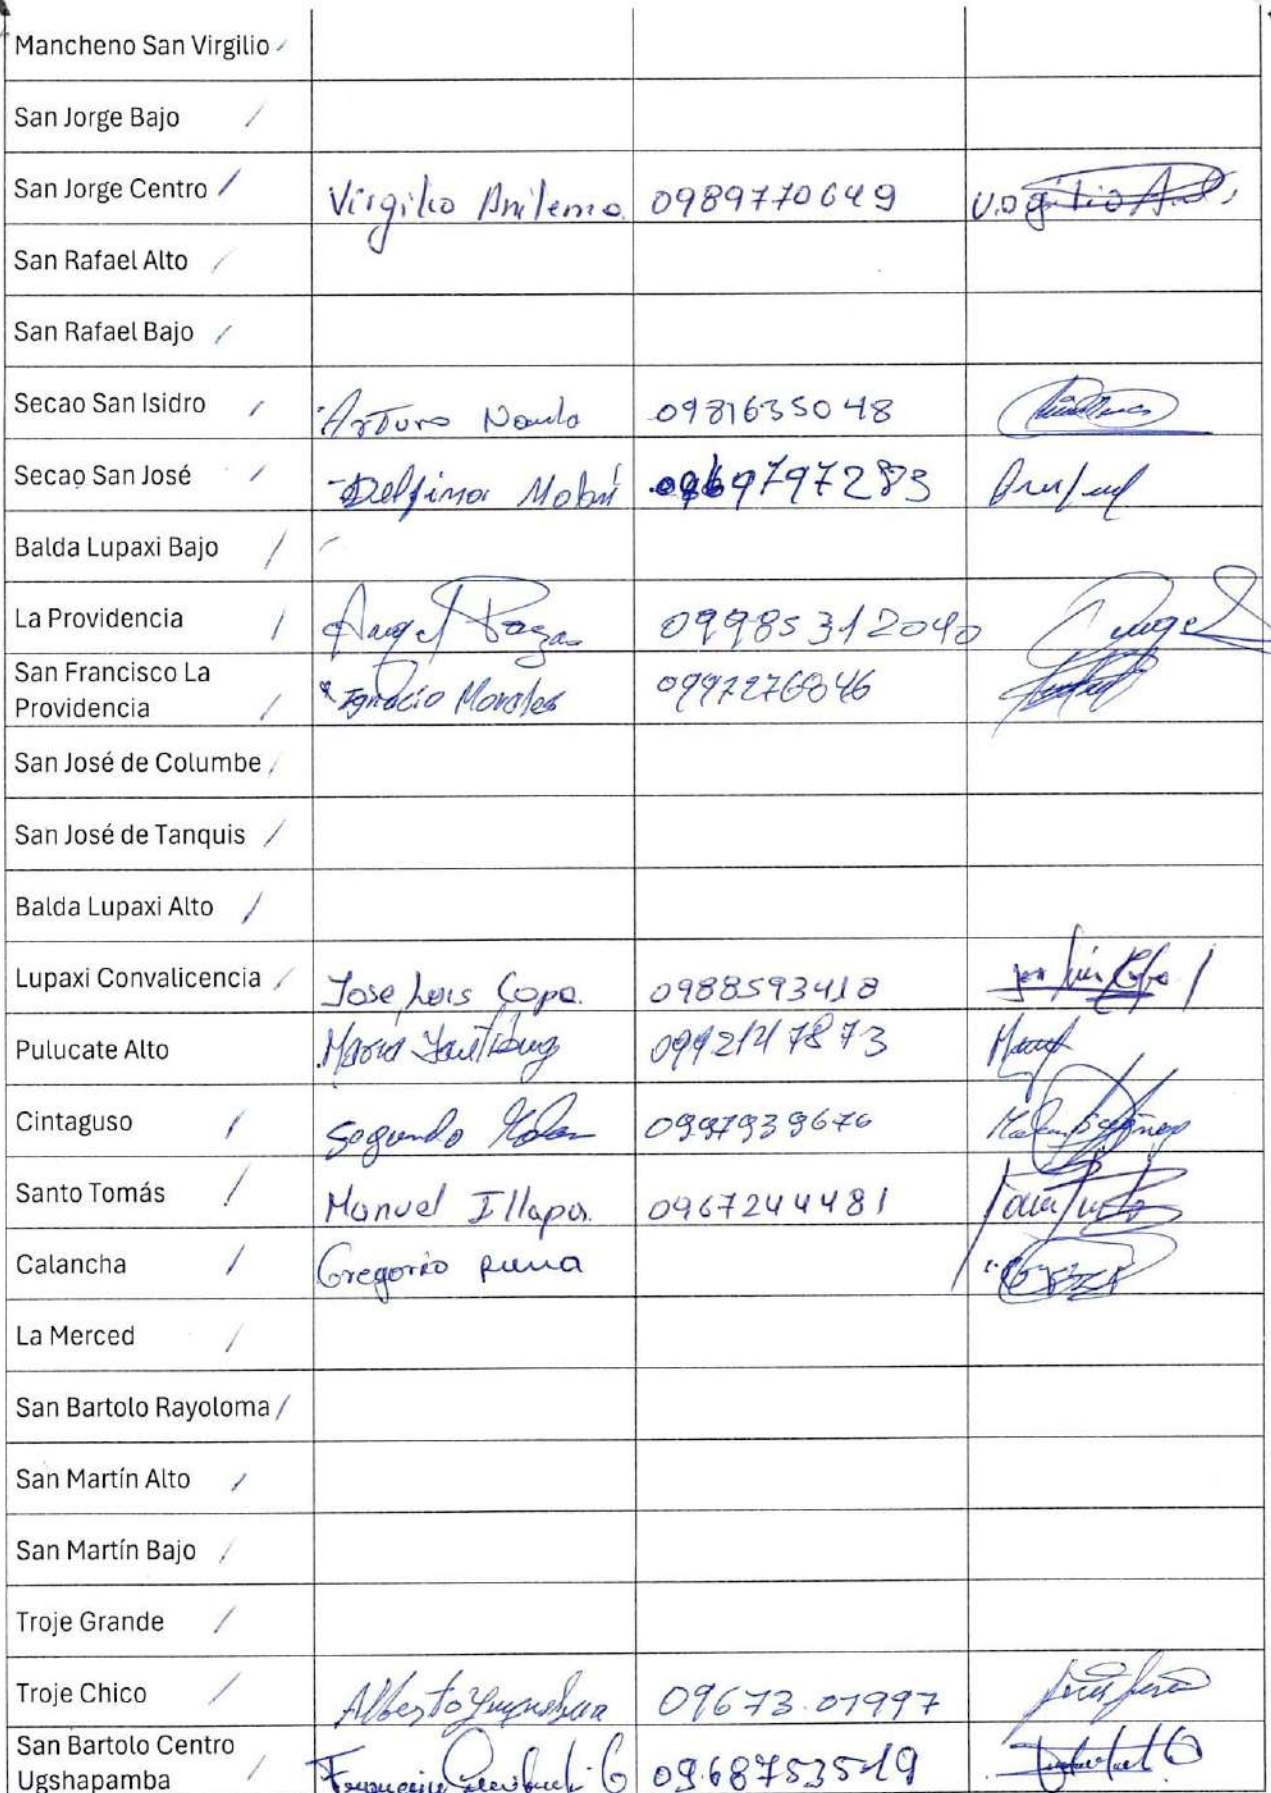 Mancheno San Virgilio
San Jorge Bajo
San Jorge Centro Virgilio Anilema 0989770649
San Rafael Alto
San Rafael Bajo
Secao San Isidro Arturo Naula 0981635048
Secao San José Delfina 0969797283
Balda Lupaxi Bajo
La Providencia Angel 09985312040 Angel
San Francisco La
Providencia Ignacio Morales
San José de Columbe
San José de Tanquis
Balda Lupaxi Alto
Lupaxi Convalicencia Jose Luis Copa. 0988593418
Pulucate Alto Maria
Cintaguso Segundo 0997939676
Santo Tomás Manuel Illapa. 0967244481
Calancha Gregorio
La Merced
San Bartolo Rayoloma
San Martín Alto
San Martín Bajo
Troje Grande
Troje Chico Alberto 09673.01997
San Bartolo Centro
Ugshapamba 0968753519